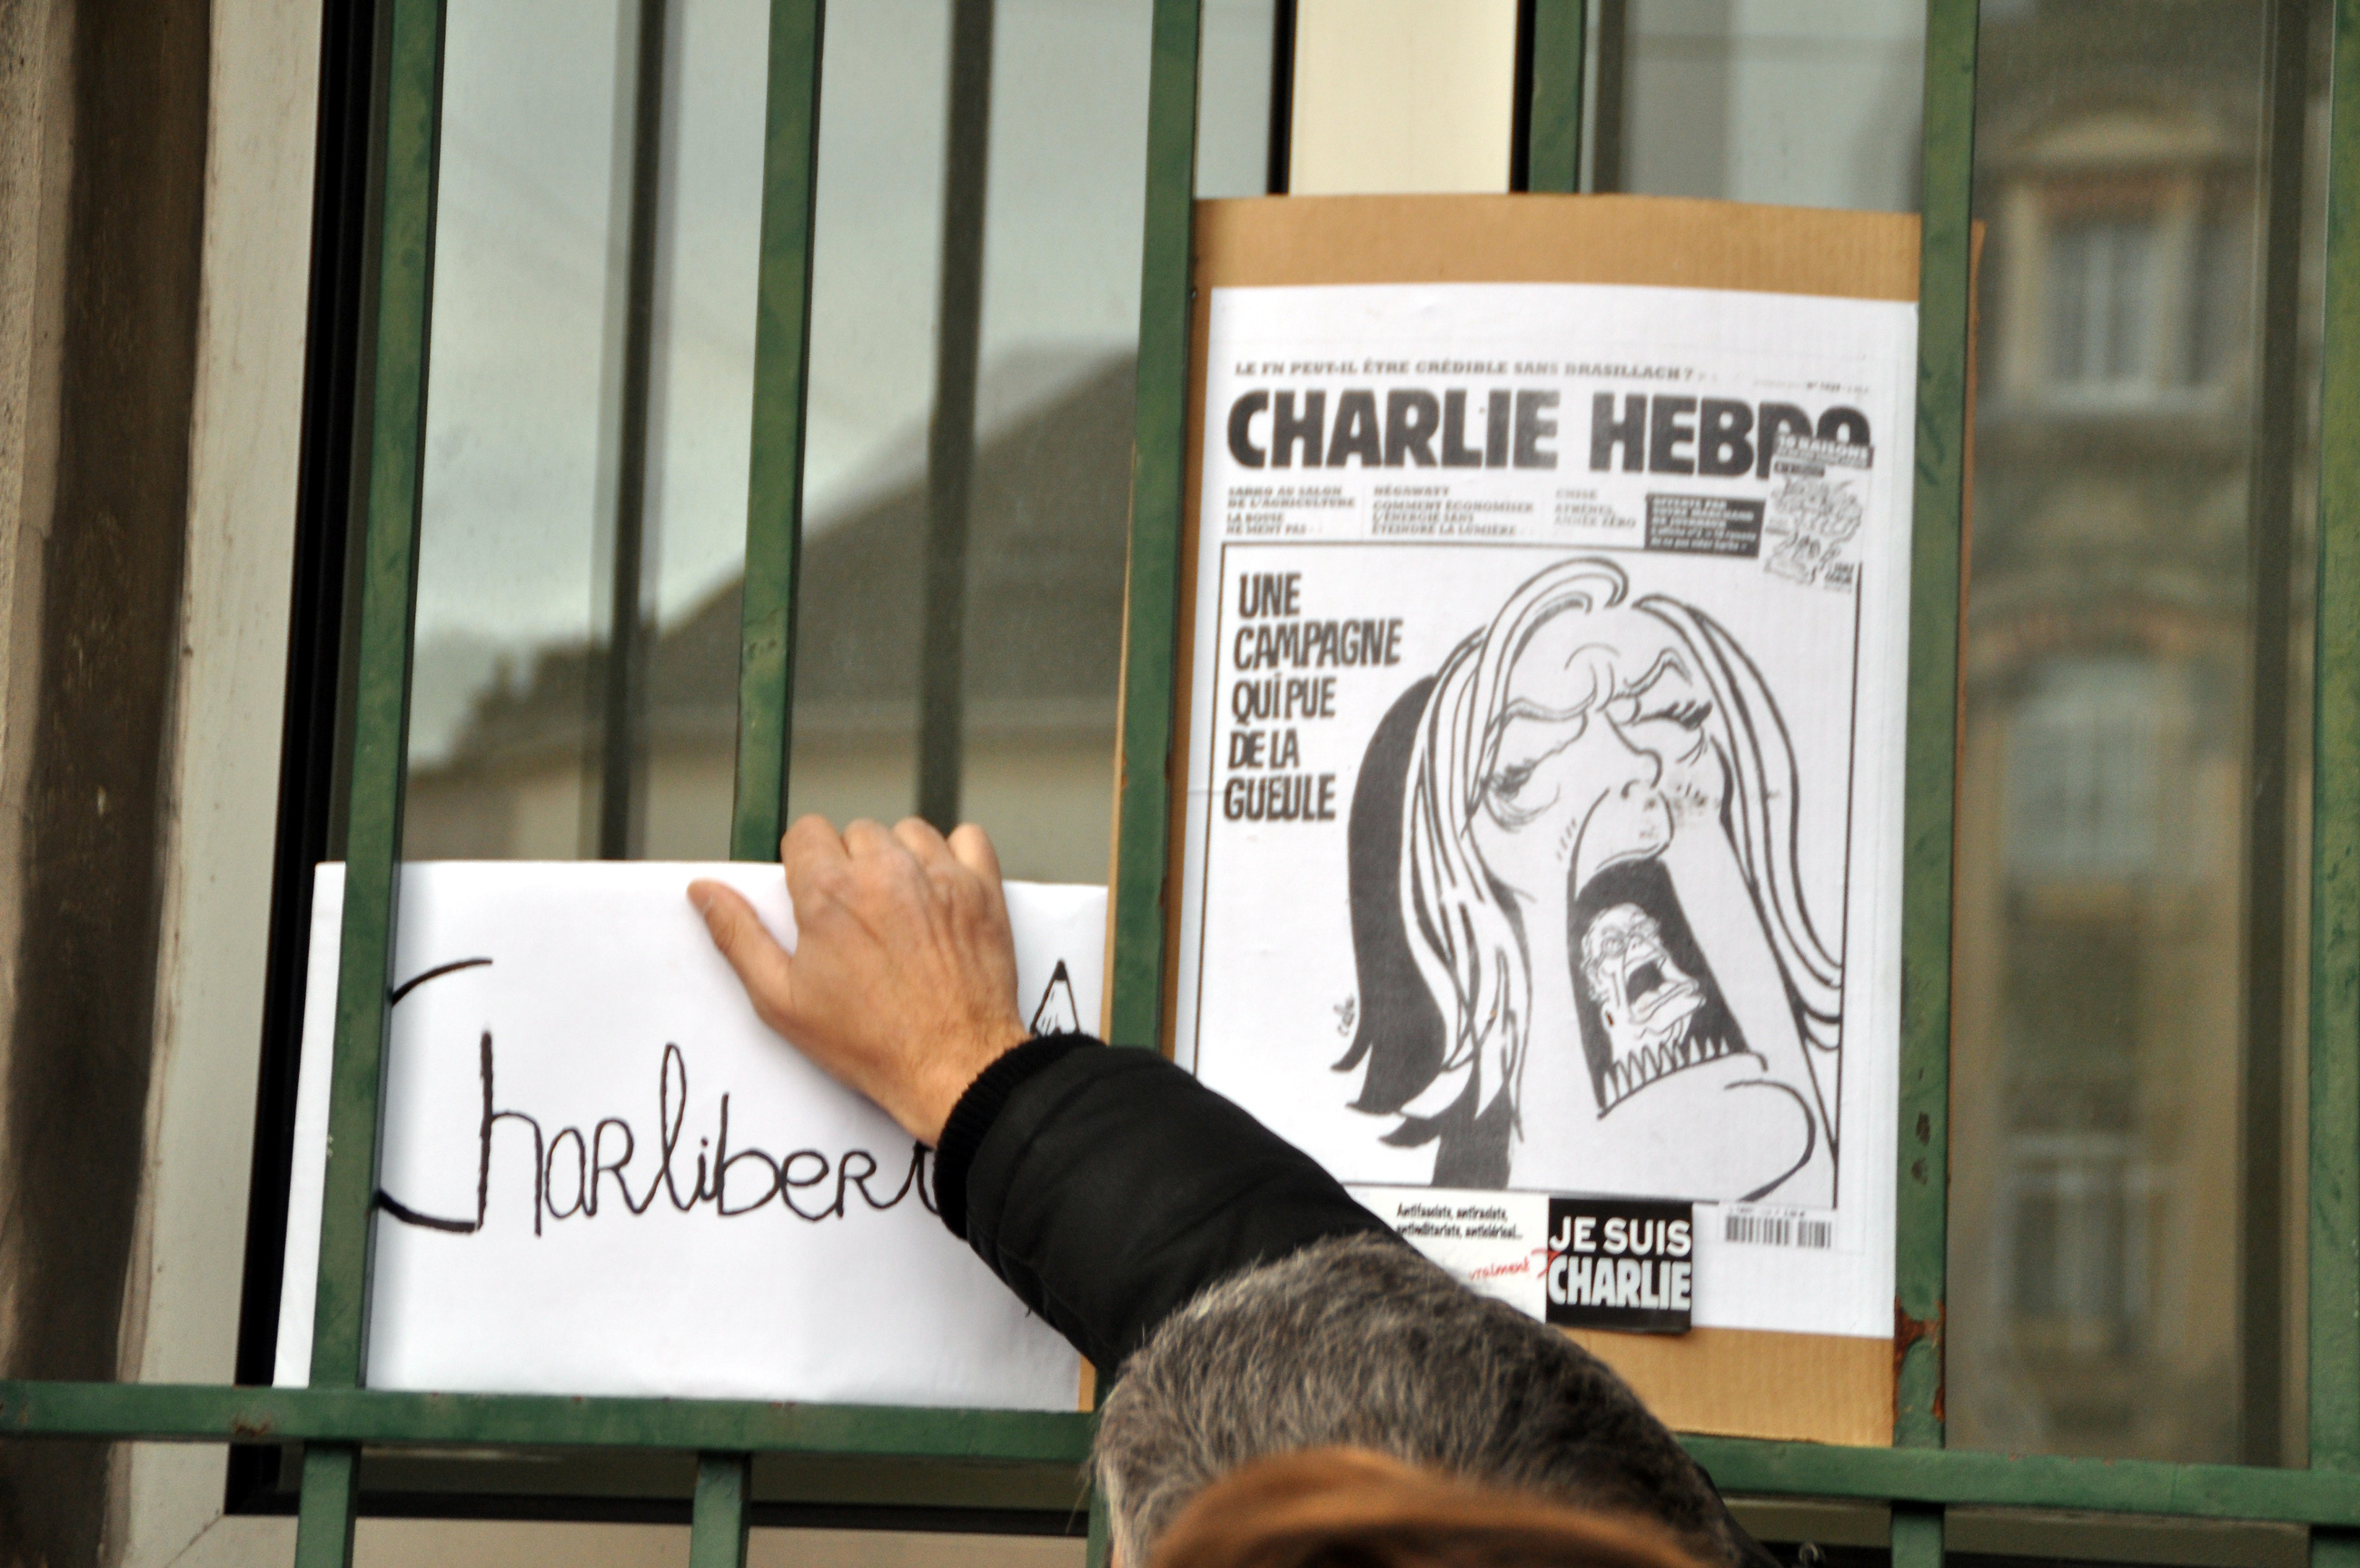 Charlibert
LE FN PEUT-IL ÊTRE CRÉDIBLE SANS BRASILLACH ?
CHARLIE HEBDO
10 RAISONS
SARKO AU SALON
DE L'AGRICULTURE
LA BOUSE
NE MENT PAS
NÉGAWATT
COMMENT ÉCONOMISER
L'ÉNERGIE SANS
ÉTEINDRE LA LUMIÈRE
CRISE
ATHÈNES,
ANNÉE ZÉRO
UNE
CAMPAGNE
QUI PUE
DE LA
GUEULE
Cabu
Antifasciste, antiraciste,
antimilitariste, anticlérical...
vraiment
JE SUIS
CHARLIE